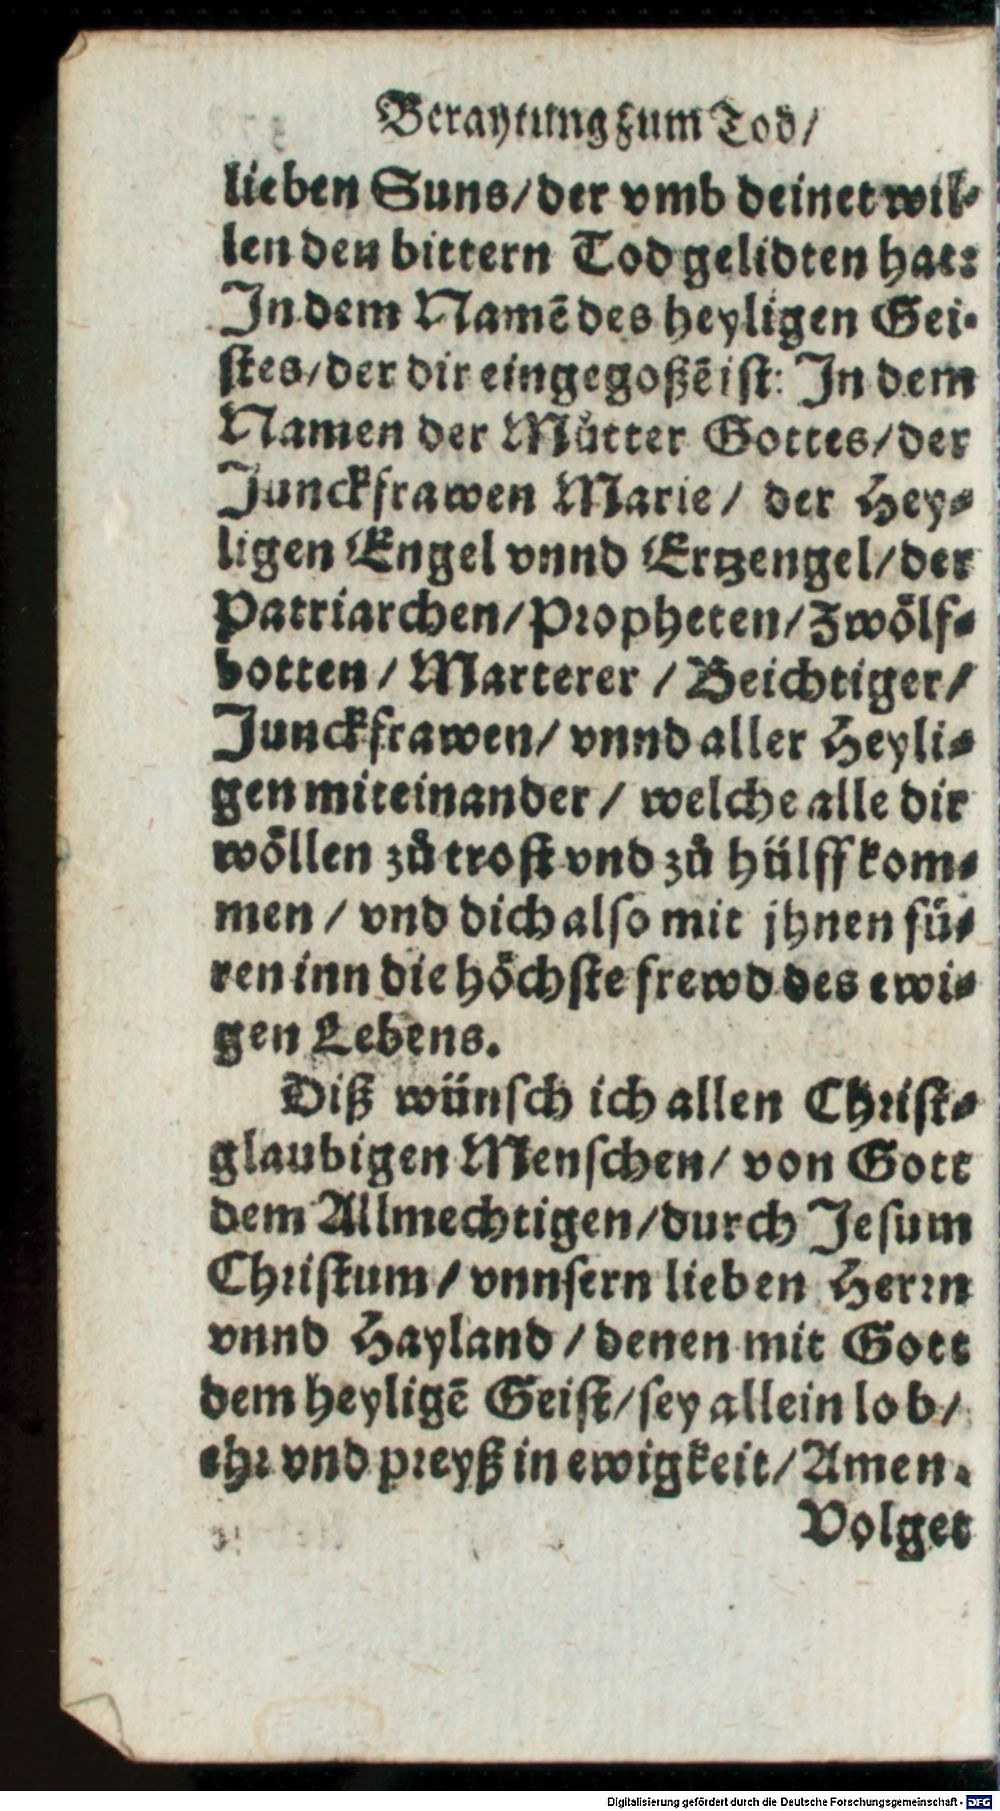 Beraytung zum Tod/
lieben Suns/der vmb deinet wil-
len den bittern Tod gelidten hat:
In dem Namē des heyligen Gei-
stes/der dir eingegoßē ist: In dem
Namen der Můtter Gottes/der
Junckfrawen Marie/ der Hey-
ligen Engel vnnd Ertzengel/der
Patriarchen/Propheten/Zwölf-
botten/ Marterer / Beichtiger/
Junckfrawen/ vnnd aller Heyli-
gen miteinander/ welche alle dir
wöllen zů trost vnd zů hülff kom-
men / vnd dich also mit jhnen fü-
ren inn die höchste frewd des ewi-
gen Lebens.
Diß wünsch ich allen Christ-
glaubigen Menschen/ von Gott
dem Allmechtigen/durch Jesum
Christum/ vnnsern lieben Herrn
vnnd Hayland/denen mit Gott
dem heyligē Geist/sey allein lob/
ehr vnd preyß in ewigkeit/Amen.
Volget
Digitalisierung gefördert durch die Deutsche Forschungsgemeinschaft - DFG